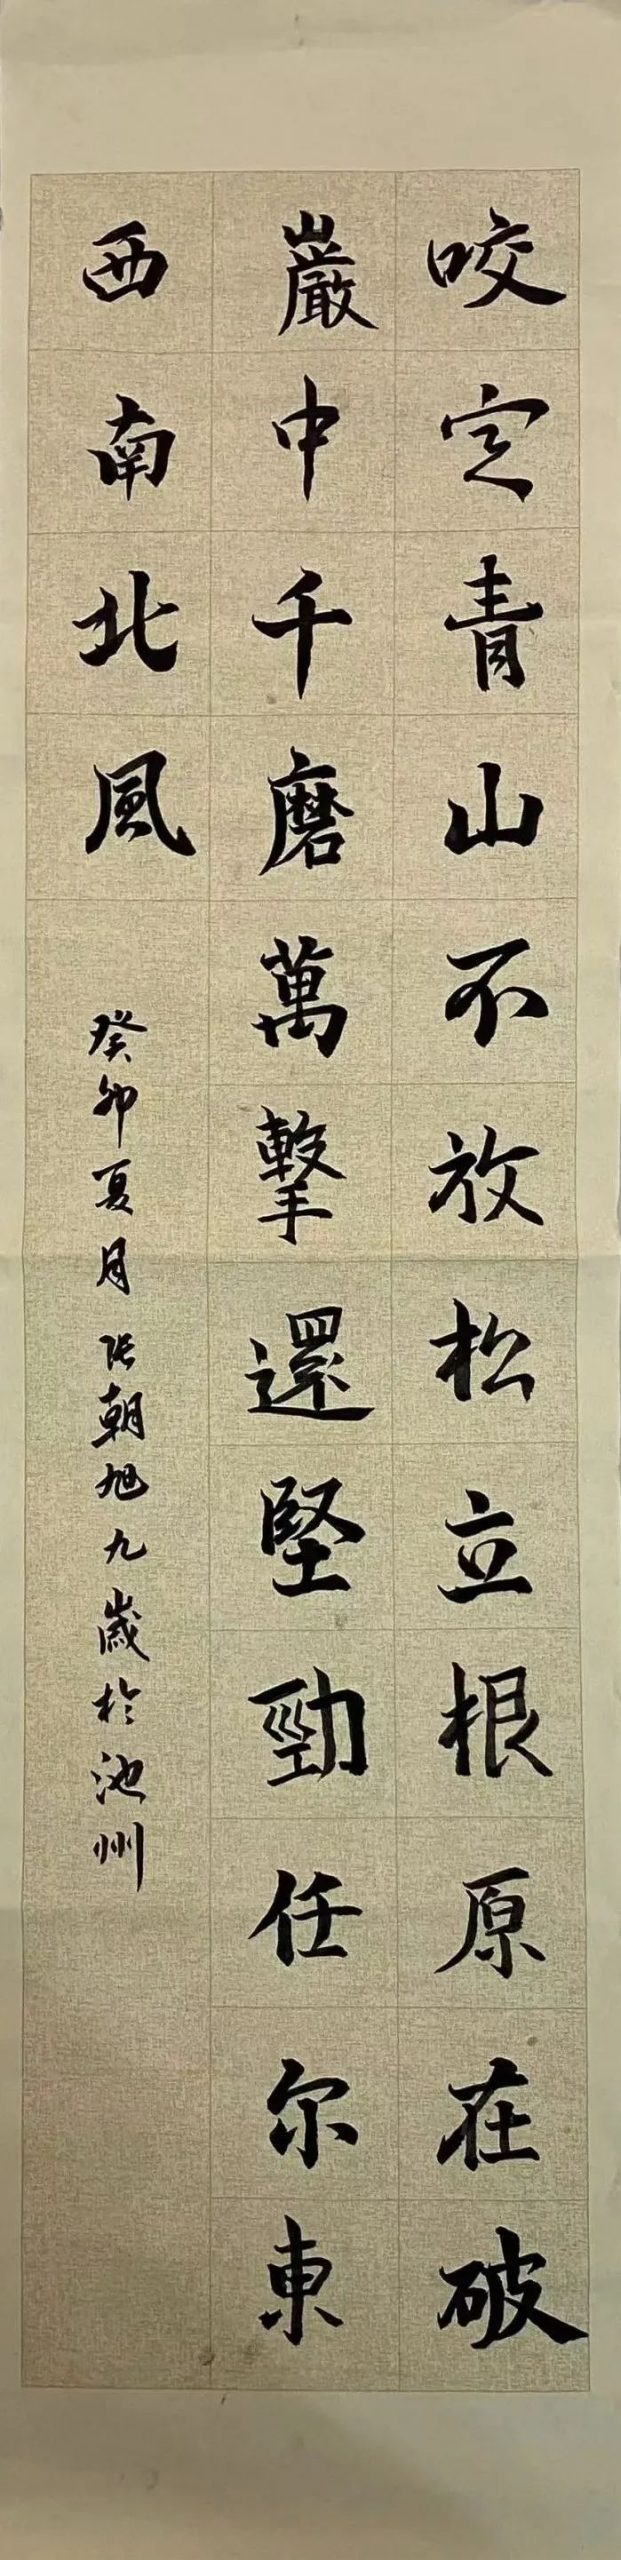 咬定青山不放松立根原在破
巖中千磨萬擊還堅勁任尔東
西南北風
癸卯夏月张朝旭九歲於池州